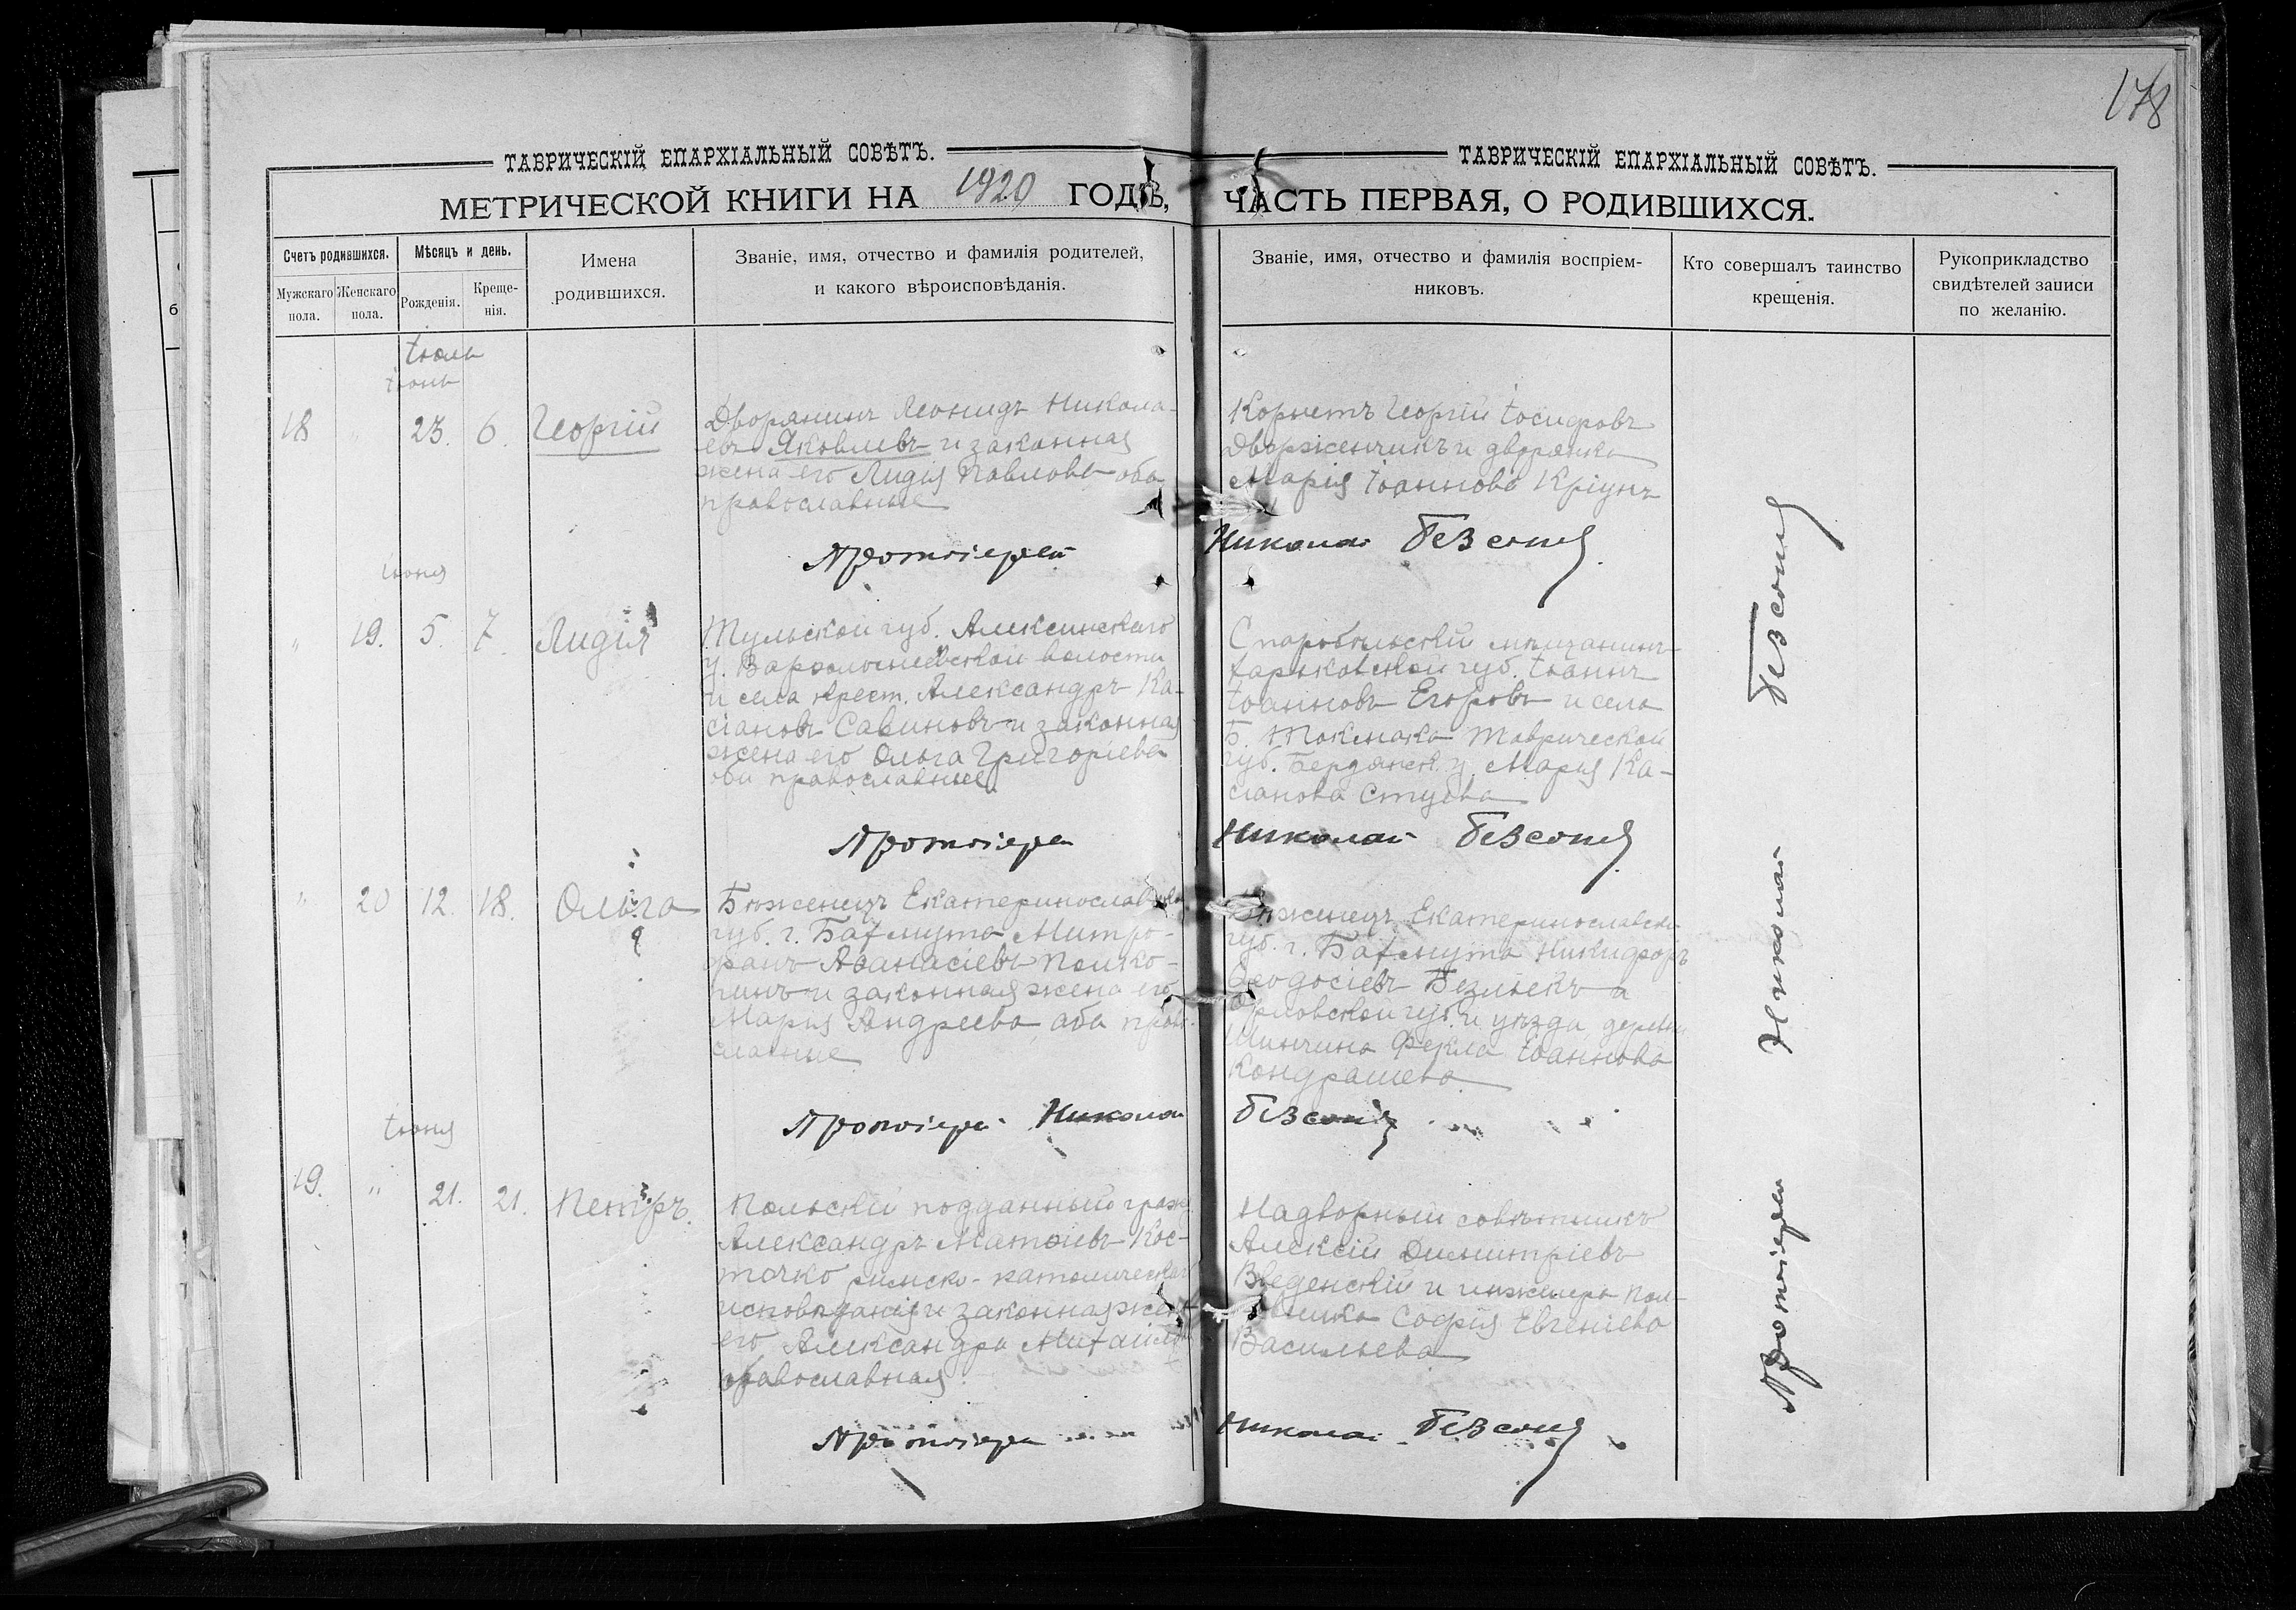 178
ТАВРИЧЕСКІЙ ЕПАРХІАЛЬНЫЙ СОВѢТЪ.
МЕТРИЧЕСКОЙ КНИГИ НА 1920 ГОДЪ,
Счетъ родившихся.
Мужскаго пола.
Женскаго пола.
Мѣсяцъ и день.
Рожденія.
Креще-
нія.
Имена
родившихся.
Званіе, имя, отчество и фамилія родителей,
и какого вѣроисповѣданія.
ТАВРИЧЕСКІЙ ЕПАРХІАЛЬНЫЙ СОВѢТЪ.
ЧАСТЬ ПЕРВАЯ, О РОДИВШИХСЯ.
Званіе, имя, отчество и фамилія воспріем-
никовъ.
Кто совершалъ таинство
крещенія.
Рукоприкладство
свидѣтелей записи
по желанію.
Іюль
Іюнь
18 " 23. 6. Георгій
Дворянинъ Леонидъ Никола-
евъ Яковлевъ и законная
жена его Лидія Павлова оба
православные
Корнетъ Георгій Іосифовъ
Дворженчикъ и дворянка
Марія Іоаннова Кріунъ
Протоіерей Николай Безсон
Іюня
" 19. 5. 7. Лидія
Тульской губ. Алексинскаго
у. Варфоломеевской волости
и села крест. Александръ Ка-
сіановъ Савиновъ и законная
жена его Ольга Григоріева
оба православные
Старобѣльскій мѣщанинъ
Харьковской губ. Іоаннъ
Іоанновъ Егоровъ и села
Б. Токмака Таврической
губ. Бердянск. у. Марія Ка-
сіанова
Протоіерей Николай Безсон
" 20 12. 18. Ольга
Бѣженецъ Екатеринославской
губ. г. Бахмута Митро-
фанъ Аѳанасіевъ
и законная жена его
Марія Андреева оба право-
славные
Бѣженецъ Екатеринославской
губ. г. Бахмута Никифоръ
Ѳеодосіевъ и
Орловской губ. и уѣзда деревни
Фекла Іоаннова
Кондрашева
Протоіерей Николай Безсон
Іюня
19. " 21. 21. Петръ.
Польскій подданный граж.
Александръ Матѳіевъ Кос-
точко римско-католическаго
исповѣданія и законная жена
его Александра Михайлова
православная
Надворный совѣтникъ
Алексій Димитріевъ
Введенскій и инженера пол-
ковника Софія Евгеніева
Васильева
Протоіерей Николай Безсон
Протоіерей Николай Безсон